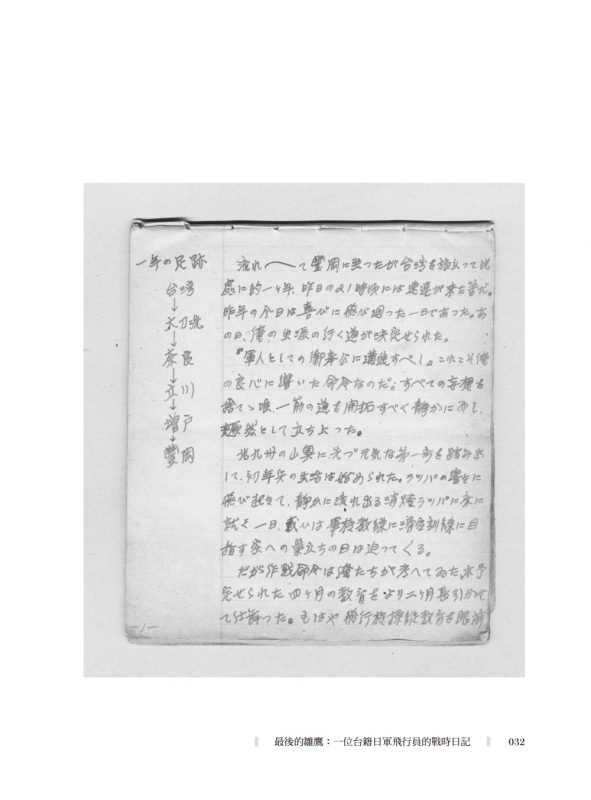 一年の足跡
台湾
↓
大刀洗
↓
奈良
↓
立川
↓
増戸
↓
豊岡
流れ〳〵て豊岡に至つたが台湾を旅立つて此
処に約一ヶ年、昨日の21時頃には速達が来た筈だ。
昨年の今日は喜びに飛び廻つた一日であつた。あ
の日、俺の生涯の行く道が決定せられた。
『軍人としての御奉公に邁進すべし』。これこそ俺
の良心に響いた命令なのだ。すべての妄想を
捨てゝ唯一筋の道を開拓すべく静かに而し
然として立ち上つた。
北九州の山奥に先づ元気な第一歩を踏み出
して、初年兵の生活は始められた。ラッパの響きに
飛び起きて、静かに流れ出る消燈ラッパに床に
就く一日、或ひは軍校教練に滑空訓練に目
指す空への巣立ちの日は迫つてくる。
だが作戦命令は俺たちが考へてゐた、予
定せられた四ヶ月の教育をより二ヶ月長引かせ
て仕舞つた。もはや飛行機操縦教育を眼前
-1-
最後的雛鷹：一位台籍日軍飛行員的戰時日記
032